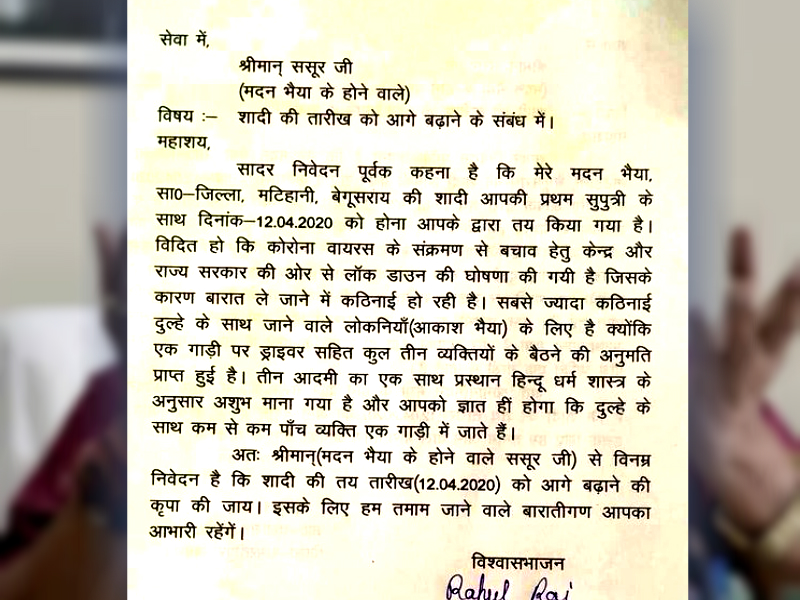 सेवा में,
श्रीमान् ससूर जी
(मदन भैया के होने वाले)
विषय :– शादी की तारीख को आगे बढ़ाने के संबंध में।
महाशय,
सादर निवेदन पूर्वक कहना है कि मेरे मदन भैया,
सा0–जिल्ला, मटिहानी, बेगूसराय की शादी आपकी प्रथम सुपुत्री के
साथ दिनांक–12.04.2020 को होना आपके द्वारा तय किया गया है।
विदित हो कि कोरोना वायरस के संक्रमण से बचाव हेतु केन्द्र और
राज्य सरकार की ओर से लॉक डाउन की घोषणा की गयी है जिसके
कारण बारात ले जाने में कठिनाई हो रही है। सबसे ज्यादा कठिनाई
दुल्हे के साथ जाने वाले लोकनियाँ(आकाश भैया) के लिए है क्योंकि
एक गाड़ी पर ड्राइवर सहित कुल तीन व्यक्तियों के बैठने की अनुमति
प्राप्त हुई है। तीन आदमी का एक साथ प्रस्थान हिन्दू धर्म शास्त्र के
अनुसार अशुभ माना गया है और आपको ज्ञात हीं होगा कि दुल्हे के
साथ कम से कम पाँच व्यक्ति एक गाड़ी में जाते हैं।
अतः श्रीमान्(मदन भैया के होने वाले ससूर जी) से विनम्र
निवेदन है कि शादी की तय तारीख(12.04.2020) को आगे बढ़ाने की
कृपा की जाय। इसके लिए हम तमाम जाने वाले बारातीगण आपका
आभारी रहेंगें।
विश्वासभाजन
Rahul Raj